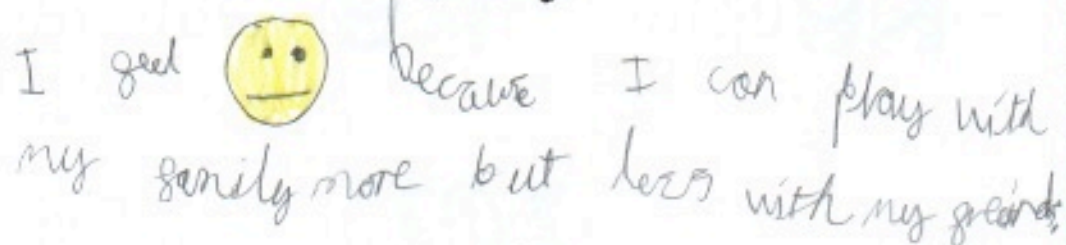 I feel because I can play with
my family more but less with my freinds.